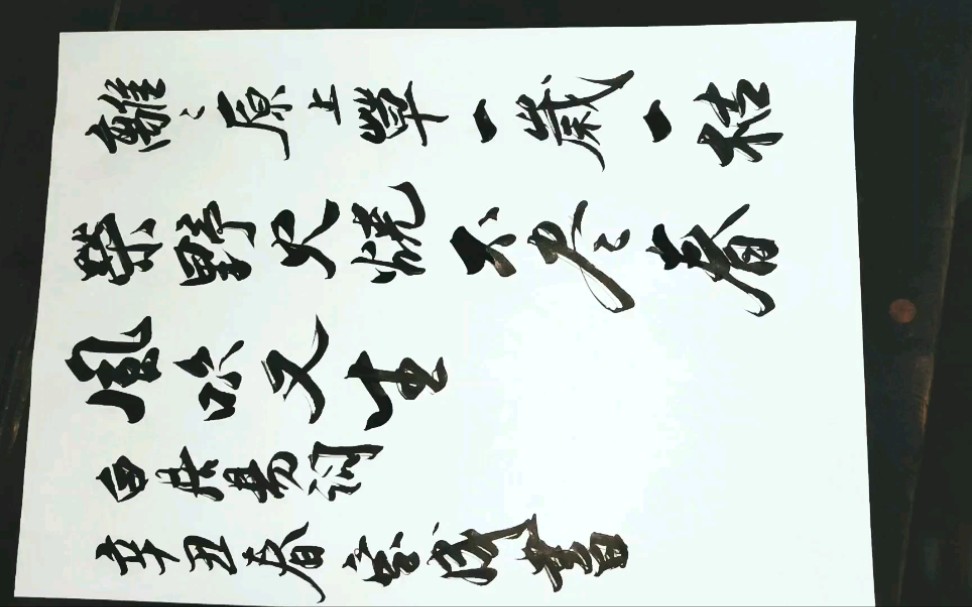 離々原上草一歲一枯
榮野火燒不盡春
風吹又生
白居易詞
辛丑春書